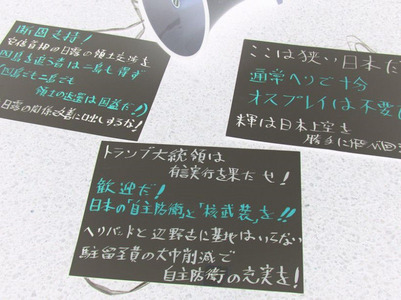 断固支持!
安倍首相の日露の領土交渉を
四島を追う者は二島も得ず
二島でも三島でも
領土の返還は国益だ!!
日露の関係改善に口出しするな!
ここは狭い日本だ
通常ヘリで十分
オスプレイは不要
米軍は日本上空を
勝手に
トランプ大統領は
有言実行を果たせ!
歓迎だ!
日本の「自主防衛」と「核武装」を!!
ヘリパッドと辺野古に基地はいらない
駐留経費の大巾削減で
自主防衛の充実を!